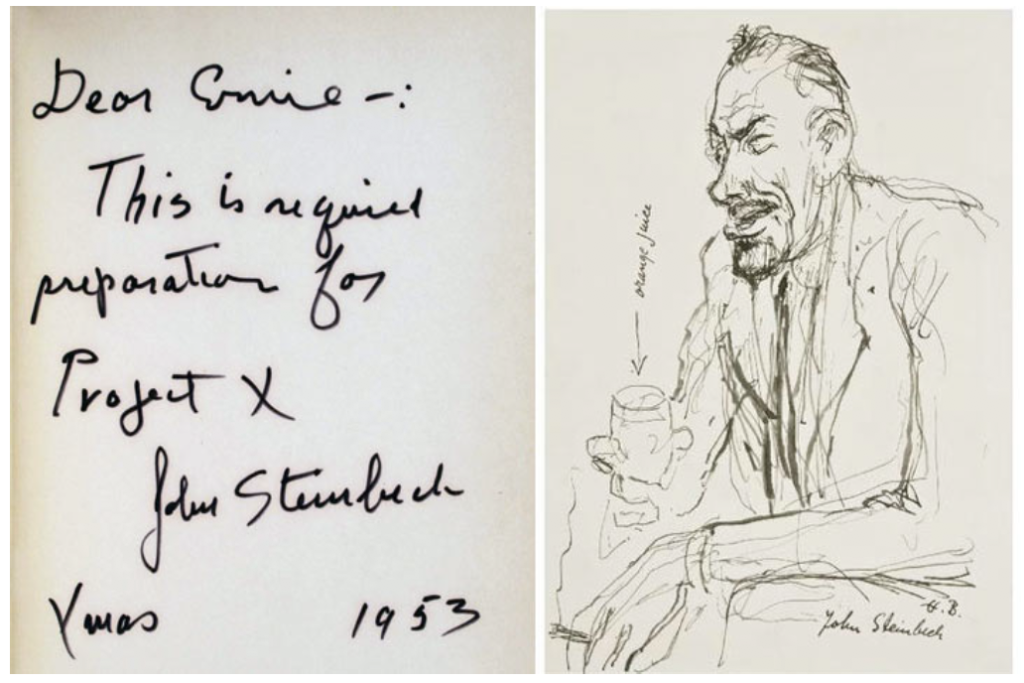 Dear Ernie -:
This is required
preparation for
Project X
John Steinbeck
Xmas 1953
orange juice
G. B.
John Steinbeck